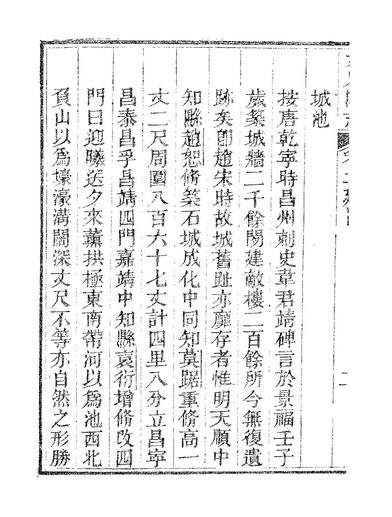 城池
按唐乾寧時昌州刺史韋君靖碑言於景福壬子
歲築城牆二千餘間建敵樓二百餘所今無復遺
跡矣卽趙宋時故城舊趾亦靡存者惟明天順中
知縣趙恕修築石城成化中同知莫踞重修高一
丈二尺周圍八百六十七丈計四里八分立昌寧
昌泰昌孚昌靖四門嘉靖中知縣袁衍增修改四
門曰迎曦送夕來薰拱極東南帶河以爲池西北
負山以爲壕濠溝闊深丈尺不等亦自然之形勝